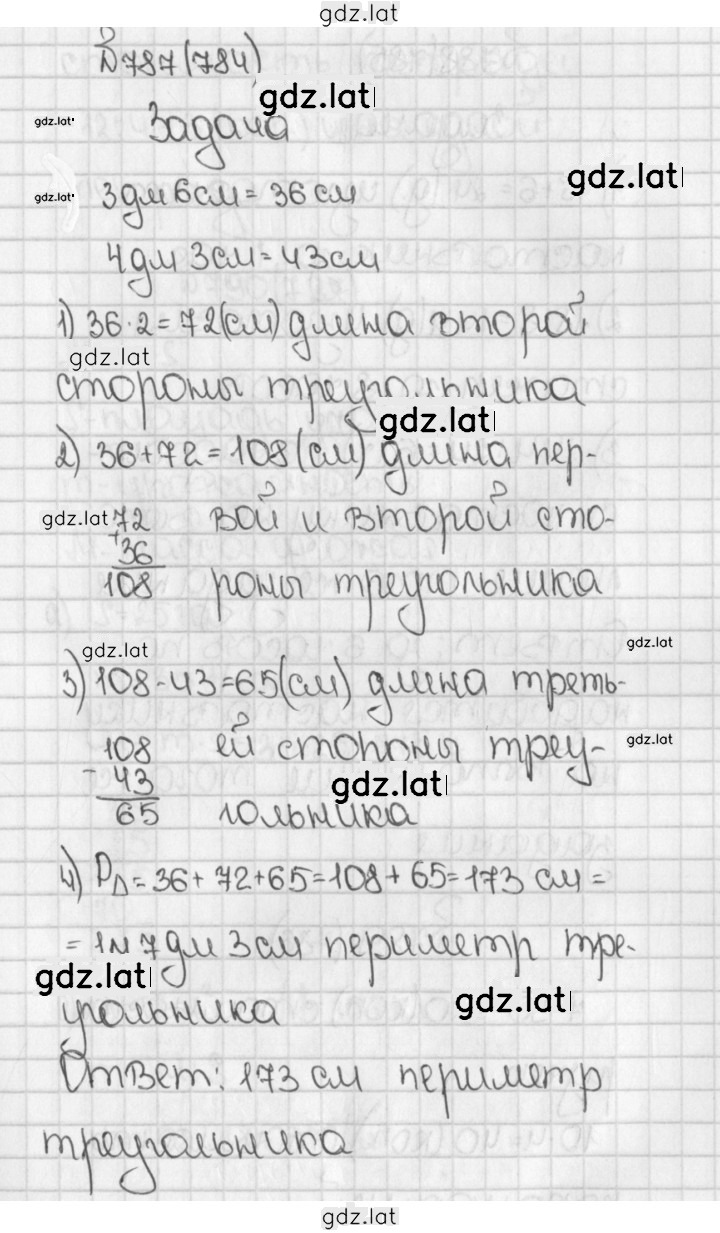 gdz.lat
№787(784)
gdz.lat
gdz.lat
Задача
gdz.lat
gdz.lat
3дм 6см = 36 см
4дм 3см = 43см
1) 36·2=72(см) длина второй
gdz.lat
стороны треугольника
gdz.lat
2) 36+72=108(см) длина пер-
gdz.lat
72 вой и второй сто-
+36
108 роны треугольника
gdz.lat
gdz.lat
3) 108-43=65(см) длина треть-
108 ей стороны треу-
gdz.lat
-43
gdz.lat
65 гольника
4) PΔ=36+72+65=108+65=173 см =
= 1м 7дм 3см периметр тре-
gdz.lat
gdz.lat
угольника
Ответ: 173 см периметр
треугольника
gdz.lat